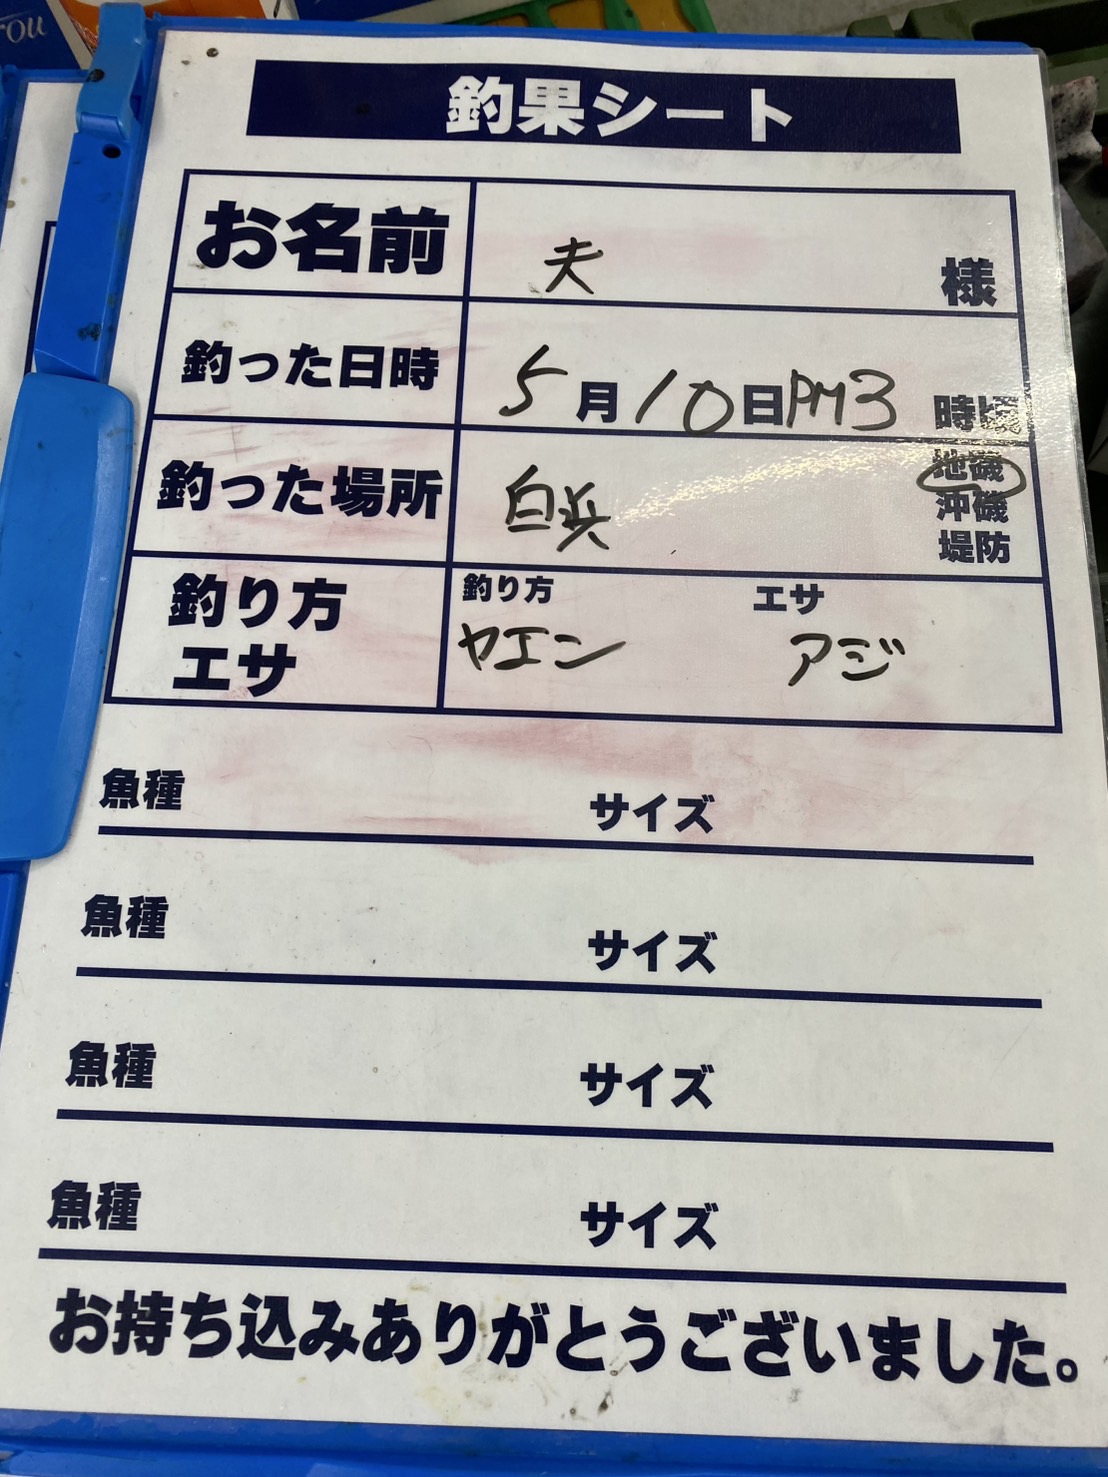 釣果シート
お名前 夫 様
釣った日時 5月10日PM3時頃
釣った場所 白浜 地磯
沖磯
堤防
釣り方 エサ
釣り方 ヤエン エサ アジ
魚種 サイズ
魚種 サイズ
魚種 サイズ
魚種 サイズ
お持ち込みありがとうございました。